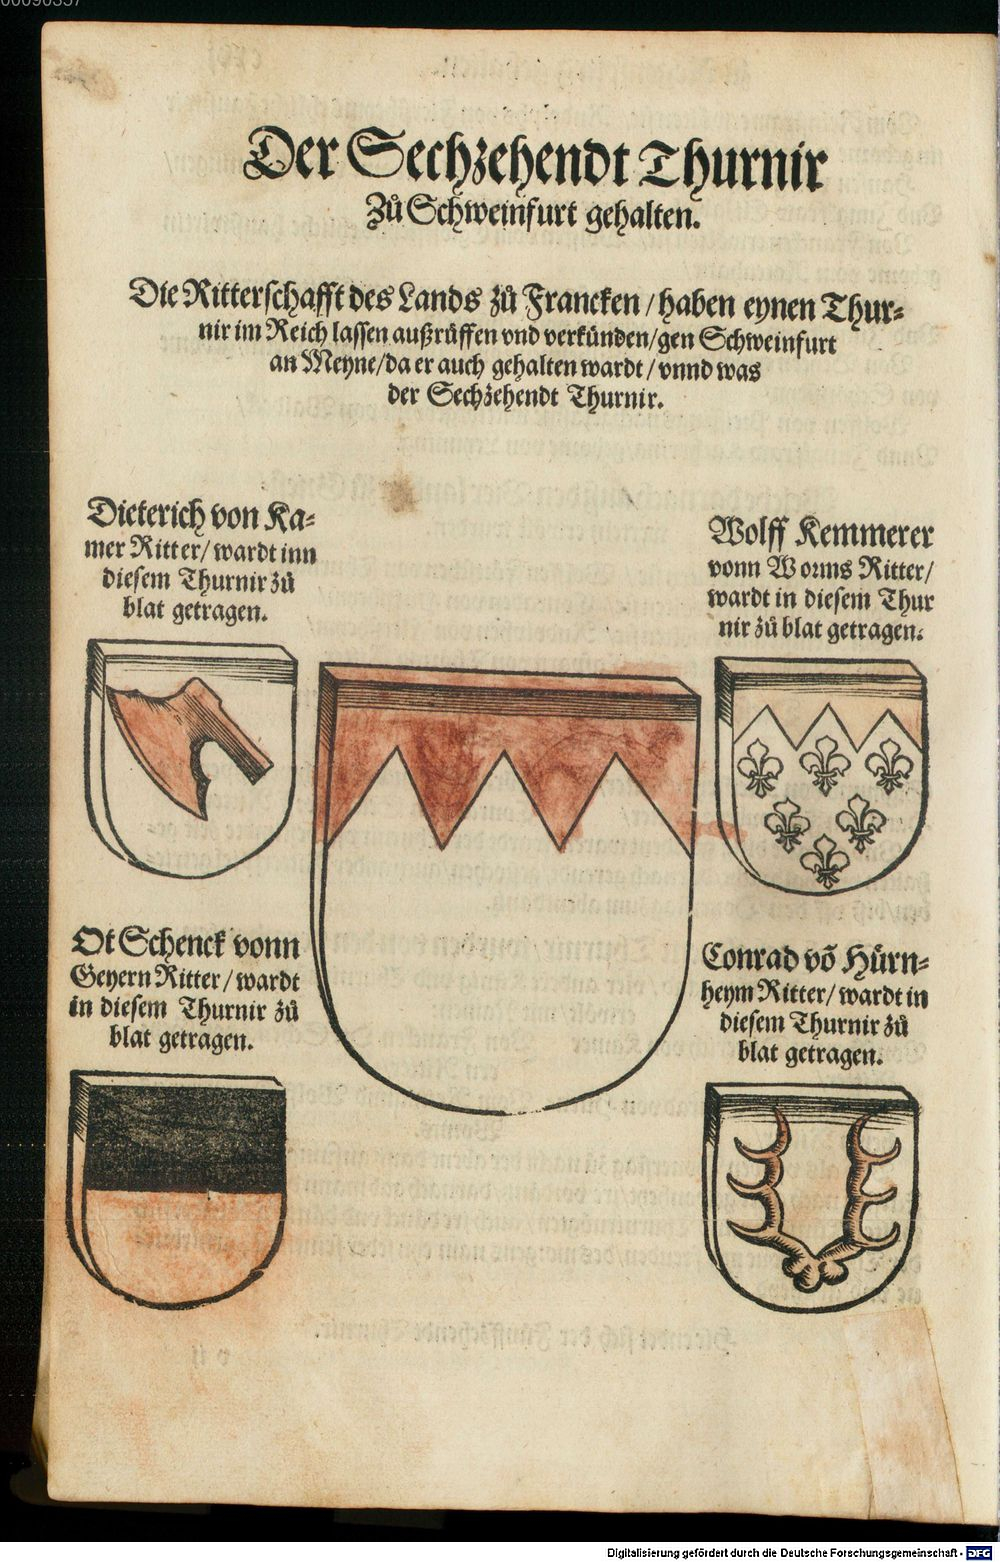 Der Sechzehendt Thurnir
Zů Schweinfurt gehalten.
Die Ritterschafft des Lands zů Francken / haben eynen Thur-
nir im Reich lassen außrůffen vnd verkünden / gen Schweinfurt
an Meyne / da er auch gehalten wardt / vnnd was
der Sechzehendt Thurnir.
Dieterich von Ka-
mer Ritter / wardt inn
diesem Thurnir zů
blat getragen.
Wolff Kemmerer
vonn Worms Ritter /
wardt in diesem Thur
nir zů blat getragen.
Ot Schenck vonn
Geyern Ritter / wardt
in diesem Thurnir zů
blat getragen.
Conrad võ Hürn-
heym Ritter / wardt in
diesem Thurnir zů
blat getragen.
Digitalisierung gefördert durch die Deutsche Forschungsgemeinschaft - DFG